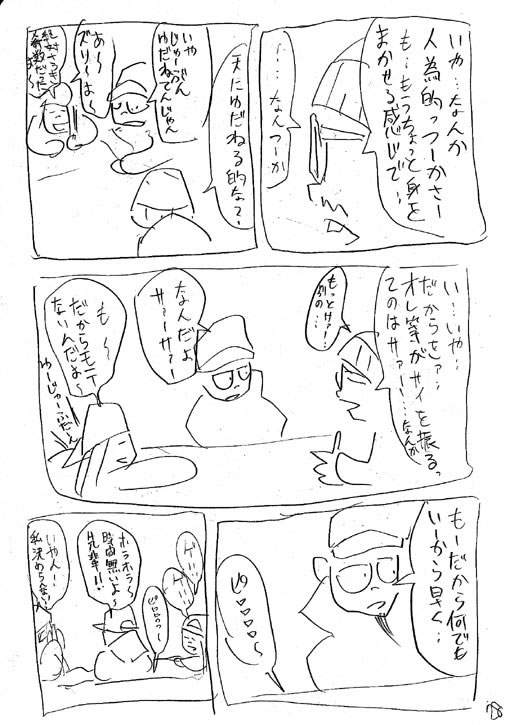 いや…なんか
人為的っつーかさー
も…もうちょっと身を
まかせる感じで…
…なんつーか
天にゆだねる的な?
いや
じゅーぶん
ゆだねてんじゃん
あ〜
ズリ〜よ〜
い…いや…
だからさァ…
オレ等がサイを振るっ
てのはサァー…なんか
もっとけァ?
別の…
なんだよ
サァーサァー
も〜
だからモテ
ないんだよ〜
ゆーじゅーふだん
もーだから何でも
いーから早く…
ピロロロ〜
ゲ!!
ゲ!!
ピロロロっ〜
ホラホラ〜
時間無いよ〜
先輩!!
いやん!
私決めらんない!